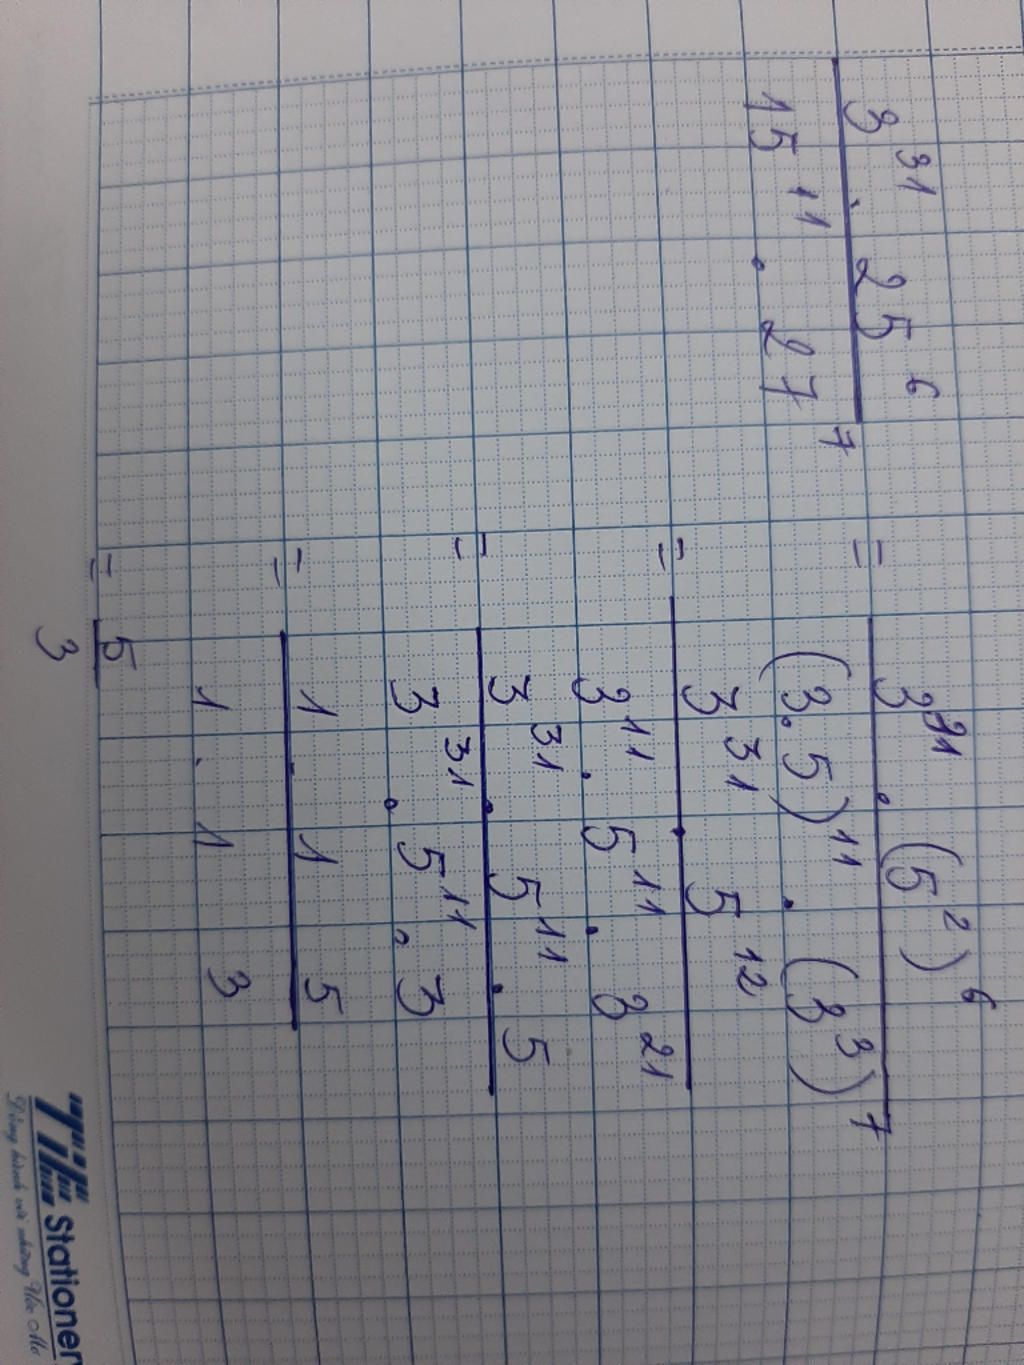 3³¹ . 25⁶ / 15¹¹ . 27⁷ = 3³¹ . (5²)⁶ / (3.5)¹¹ . (3³)⁷
= 3³¹ . 5¹² / 3¹¹ . 5¹¹ . 3²¹
= 3³¹ . 5¹¹ . 5 / 3³¹ . 5¹¹ . 3
= 1 . 1 5 / 1 . 1 3
= 5 / 3
Stationery